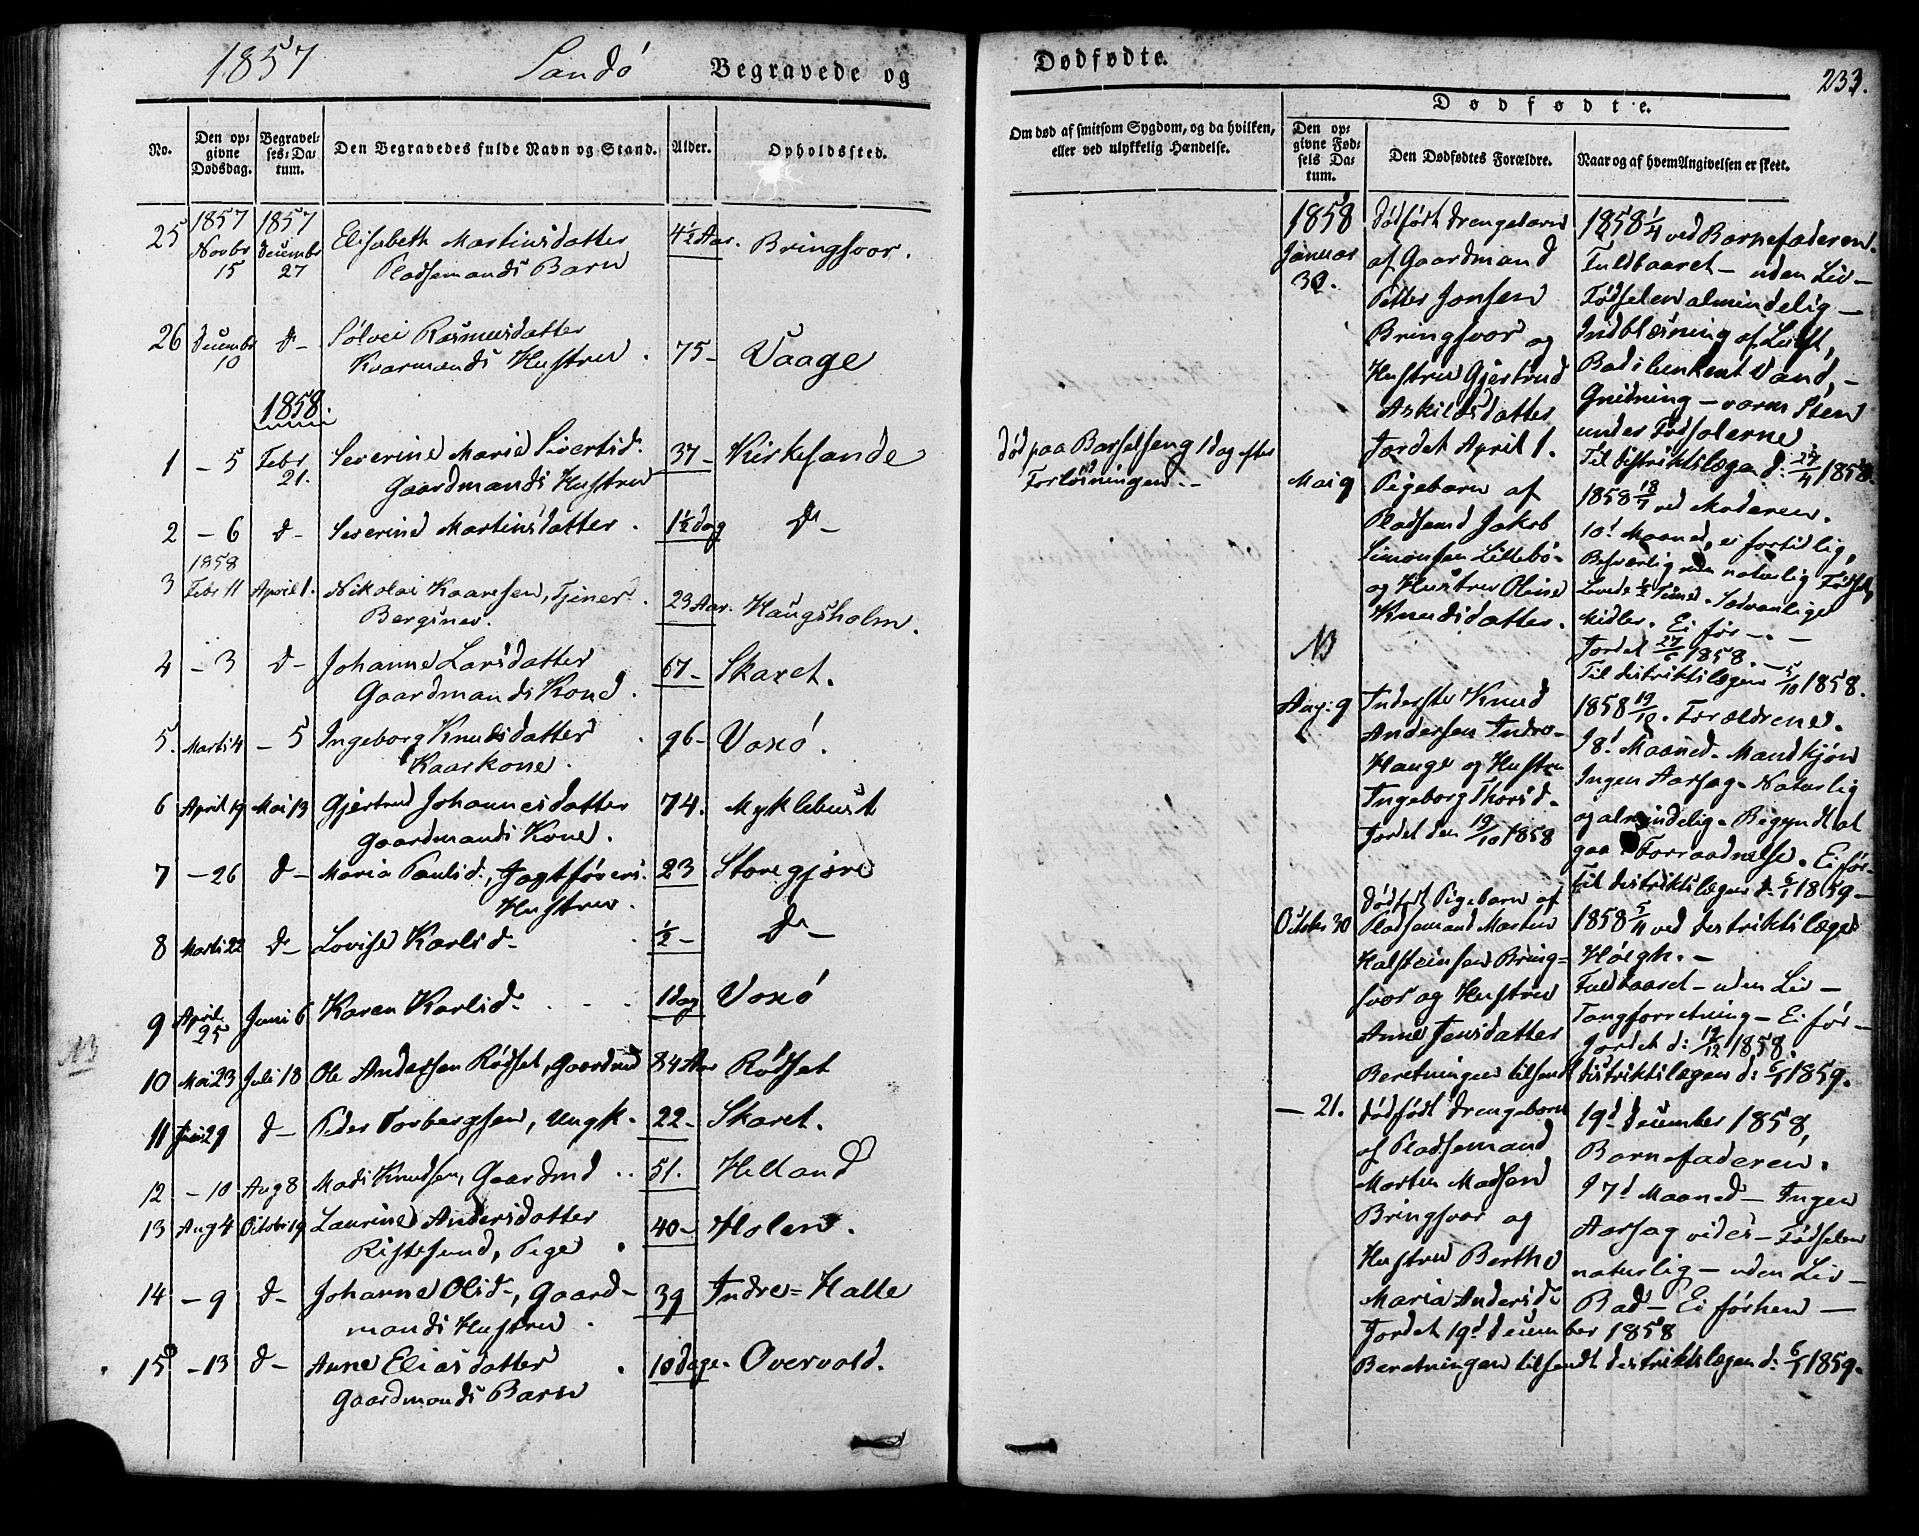 1857 Sandö Begravede og
No. Den opgivne Dødsdag. Begravelses-Datum. Den Begravedes fulde Navn og Stand. Alder. Opholdssted.
25 1857 Novbr 15 1857 Decembr 27 Elisabeth Martinsdatter 4½ Aar. Bringsvor.
Pladsemands Barn
26 Decembr 10 d– Sölvei Rasmusdatter 75– Vaage
Kaarmands Hustru.
1858.
1 – 5 Febr 21. Severine Marie Sivertsd. 37– Kirkesande
Gaardmands Hustru
2 – 6 d– Severine Martinsdatter. 1½ dag D–
1858
3 Febr 11 April 1. Nikolai Kaaresen, Tjener. 23 Aar. Haugsholm.
Berginer.
4 – 3 d– Johanne Larsdatter 67– Skaret.
Gaardmands Kone.
5. Marti 4 – 5 Ingeborg Knudsdatter. 96– Voxö.
Kaarkone.
6 April 19 Mai 13 Gjertrud Johannesdatter 74. Myklebust
Gaardmands Kone.
7 – 26 d– Maria Paulsd., Jagtförers 23 Storegjöre
Hustru.
8 Marti 22 d– Lovise Karlsd– ½– D–
9 April 25 Juni 6 Karen Karlsd. 1 dag Voxö
NB
10 Mai 23 Juli 18 Ole Andersen Rödset, Gaardmd 84 Aar Rödset
11 Juni 29 d– Peder Torbergsen, Ungk. 22– Skaret.
12 – 10 Aug 8 Mads Knudsen, Gaardmd 51. Helland
13 Aug 4 Octobr 19 Laurine Andersdatter 40– Holen.
Ristesund, Pige.
14 – 9 d– Johanne Olsd–, Gaard– 39 Indre=Halle
mands Hustru.
15 – 13 d– Anne Eliasdatter. 10 dage– Overvold.
Gaardmands Barn
Dødfødte. 233.
Dødfødte.
Om død af smitsom Sygdom, og da hvilken, eller ved ulykkelig Hændelse.
Den opgivne Fødsels Datum. Den Dødfødtes Forældre. Naar og af hvem Angivelsen er skeet.
död paa Barselseng 1 dag efter
Forlösningen. –
1858 Januar 30. Dödfödt Drengebarn
af Gaardmand
Petter Jonsen
Bringsvor og
Hustru Gjertrud
Askildsdatter
Jordet April 1.
1858 1/4 ved Barnefaderen.
Fuldbaaret – uden Liv –
Födselen almindelig –
Indblæsning af Luft,
Bad i lunkent Vand, –
Gnidning – varm Steen
under Fodsolerne.
Til distriktslægen d: 27/4 1858.
Mai 9 Pigebarn af
Pladsemd Jakob
Simonsen Lillebö–
og Hustru Oline
Knudsdatter.
1858 18/7 ved Moderen.
10d Maaned, ei fortidlig,
Besværlig men naturlig Födsel,
Levede ½ Time. Sædvanlige
Midler. Ei för –. –
Jordet 27/6 1858. –
Til distriktslægen 5/10 1858.
NB
Aug: 9 Inderste Knud
Andersen Indre–
Hauge og Hustru
Ingeborg Thorsd–
Jordet den 19/10 1858
1858 19/10. Forældrene.
I 8d Maaned. Mandkjön
Ingen Aarsag– Naturlig
og almindelig– Begyndt at
gaa i Forraadnelse. Ei för–
Til distriktslægen d: 6/1 1859–
October 30 Dödfödt Pigebarn af
Pladsemand Morten
Halsteinsen Bring=
svor og Hustru
Anne Jensdatter
Beretningen tilsendt distriktslægen d: 6/1 1859.
1858 5/11 ved distriktslæge
Höigh. –
Fuldbaaret – uden Liv –
Tangforretning – Ei för –
Jordet d: 19/12 1858.
– 21. Dödfödt drengebarn
af Pladsemand
Morten Madsen
Bringsvor og
Hustru Berthe
Maria Andersd
Jordet 19d december 1858
Beretningen tilsendt distriktslægen d: 6/1 1859.
19d december 1858,
Barnefaderen.
I 7d Maaned – Ingen
Aarsag vides – Födselen
naturlig – uden Liv –
Bad – Ei förhen –